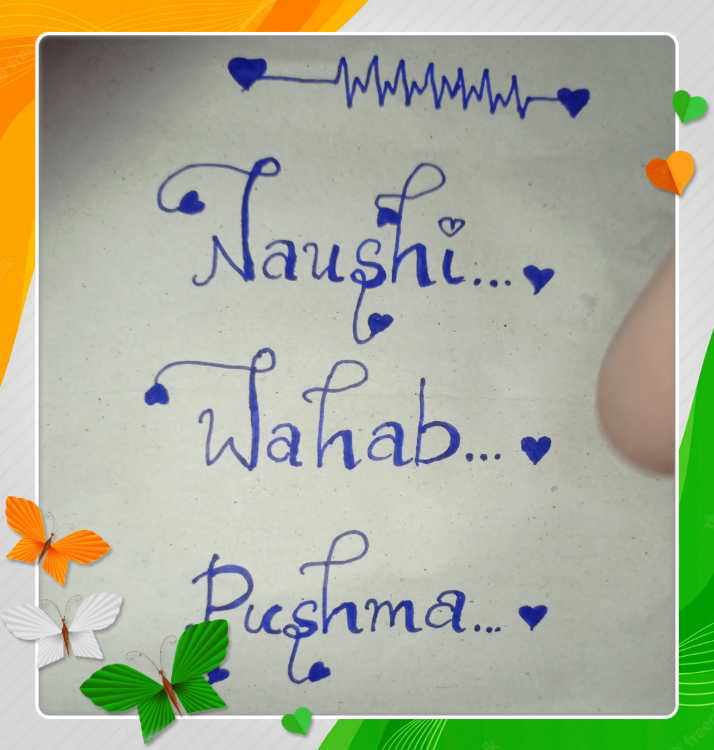 Naushi...
Wahab...
Pushma...